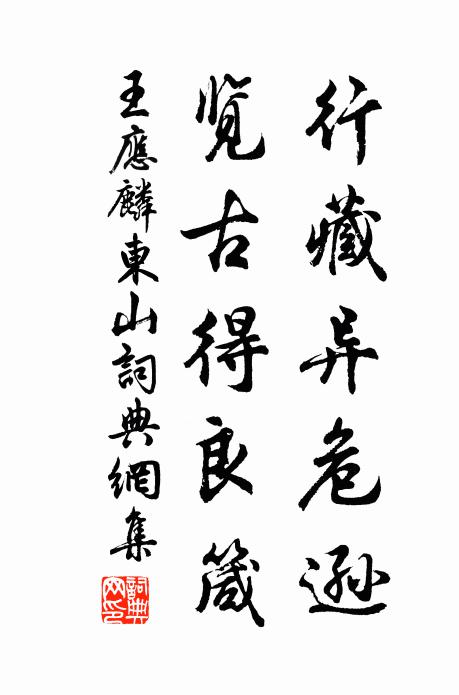 行藏异危逊
览古得良箴
王應麟東山詞典網集
詞典网印